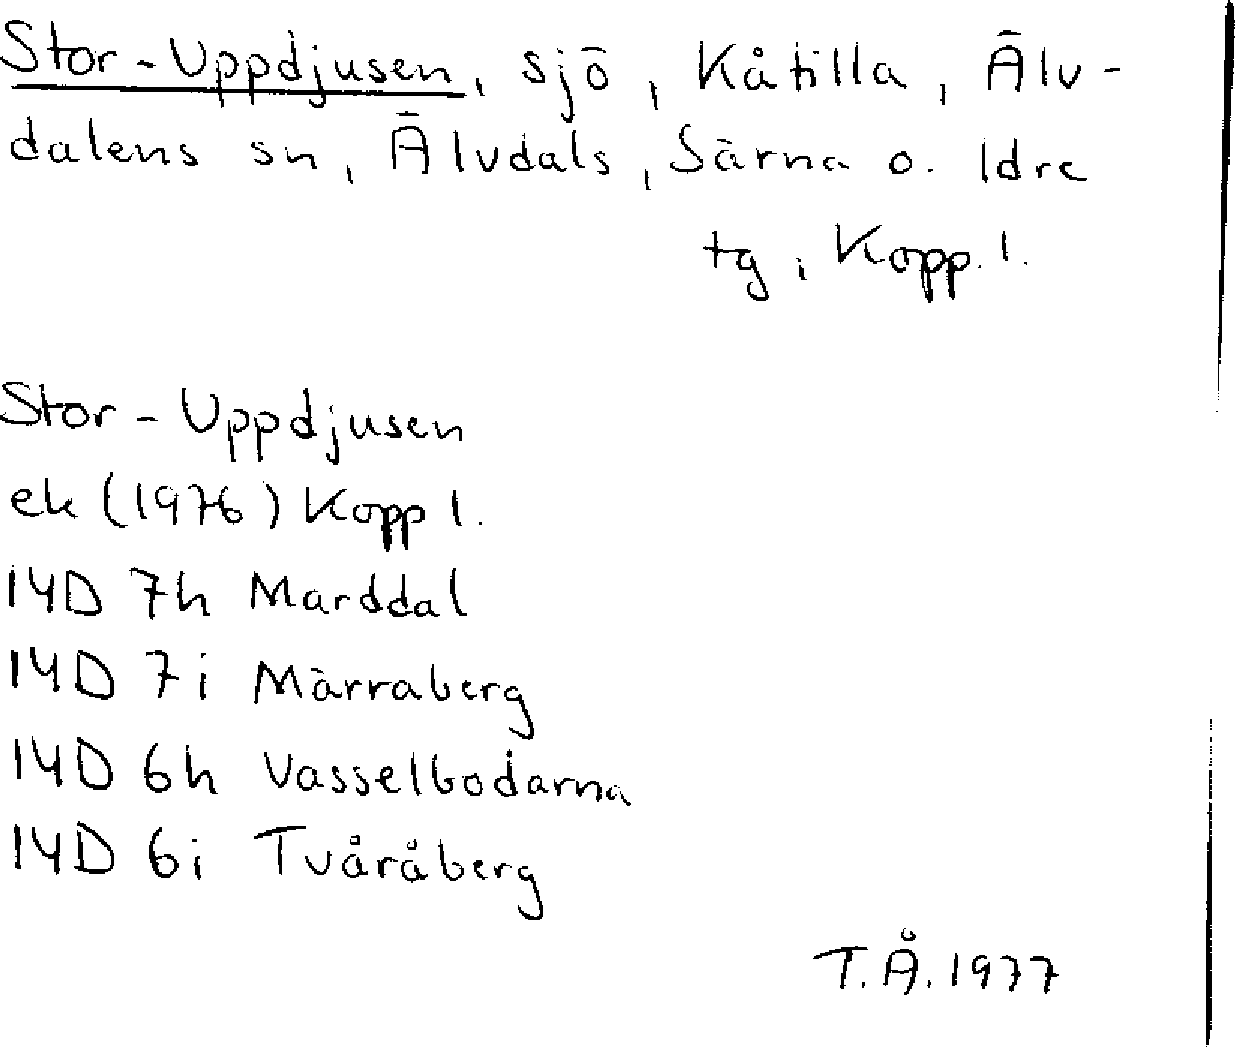 Stor-Uppdjusen, sjö, Kåtilla, Älv-
dalens sn, Älvdals, Särna o. Idre
tg, Kopp. l.
Stor-Uppdjusen
ek (1976) Kopp l.
14D 7h Marddal
14D 7i Märraberg
14D 6h Vasselbodarna
14D 6i Tvåråberg
T.Å. 1977